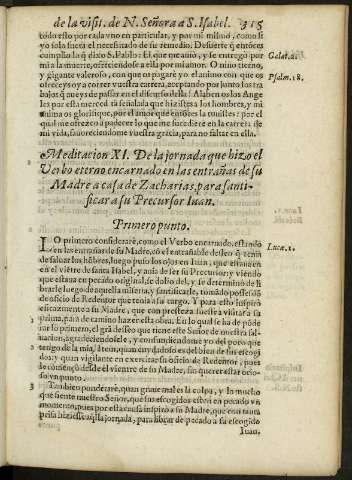 de la visit. de N. Señora a S. Isabel. 315
todo esto por cada vno en particular, y por mi mismo, como si
yo solo fuera el necesitado de su remedio. De suerte q̃ entõces
cumplio lo q̃ dixo S. Pablo: El que que amò, y se entregò por
mi a la muerte, ofreciendose a ella por mi amor. O niño tierno,
y gigante valeroso, con que os pagarè yo el animo con que os
ofreceys oy a correr vuestra carrera, aceptando por junto los tra
bajos q̃ aueys de passar en el discurso della? Alaben os los Ange
les por esta merced tã señalada que hizistes a los hombres, y mi
anima os glorifique, por el amor que entõces la tuuistes: por el
qual me ofrezco à padecer lo que me sucediere en la carrera de
mi vida, fauoreciendome vuestra gracia, para no faltar en ella.
Galat. 2.
Psalm. 18.
Meditacion XI. De la jornada que hizo el
Verbo eterno encarnado en las entrañas de su
Madre a casa de Zacharias, para santi-
ficar a su Precursor Iuan.
Primero punto.
LO primero considerarè, como el Verbo encarnado, estando
en las entrañas de su Madre, cõ el entrañable desseo q̃ tenia
de saluar los hõbres, luego puso los ojos en Iuan, que estaua en
en el viẽtre de santa Isabel, y auia de ser su Precursor: y viendo
que estaua en pecado original, se dolio del, y se determinò de li
brarle luego de aquella miseria, y santificarle, tomãdo possessiõ
de oficio de Redentor que tenia a su cargo. Y para esto inspirò
eficazmente a su Madre, que con presteza fuesse a visitar a su
prima, para dar camino hazer esta obra. En lo qual se ha de põde
rar lo primero, el grã desseo que tiene este Señor de nuestra sal-
uacion, agradeciendosele, y confundiendome yo del poco que
tengo de la mia. Iten, quan cuydadoso es del bien de sus escogi
dos: y quan vigilante en exercitar su oficio de Redentor, pues
de comiẽço desde el vientre de su Madre, sin querer estar ocio
so vn punto.
Lucæ. 1.
2
3 Tambien ponderarè, quan graue mal es la culpa, y lo mucho
que siente nuestro Señor, que sus escogidos esten en pecado vn
momento, pues por esta causa inspirò a su Madre, que con tanta
prisa hiziesse aq̃lla jornada, para librar de pecado a su escogido
Iuan.